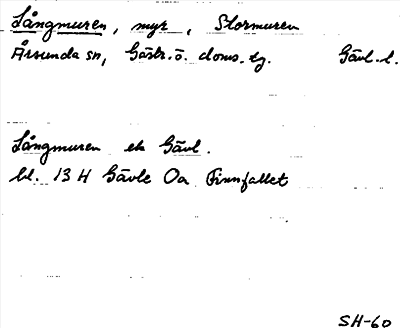 Långmuren, myr, Stormuren
Årsunda sn, Gästr. ö. doms. tg. Gävl. l.
Långmuren ek Gävl.
bl. 13 H Gävle 0a Finnfallet
SH-60